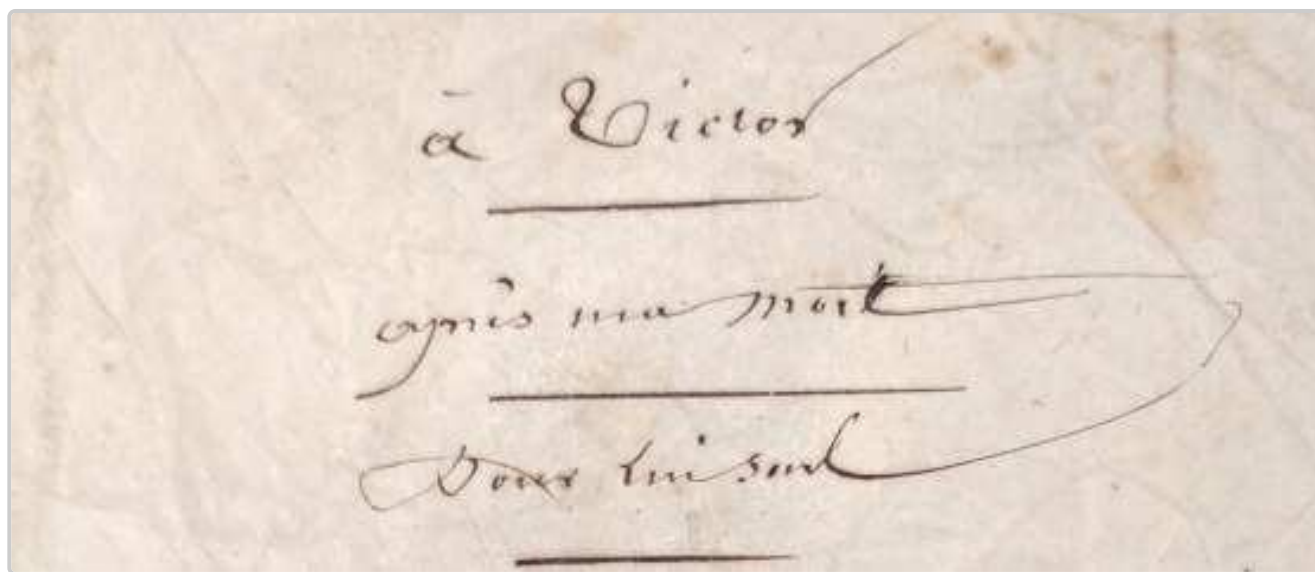 à Victor
après ma mort
Pour lui seul